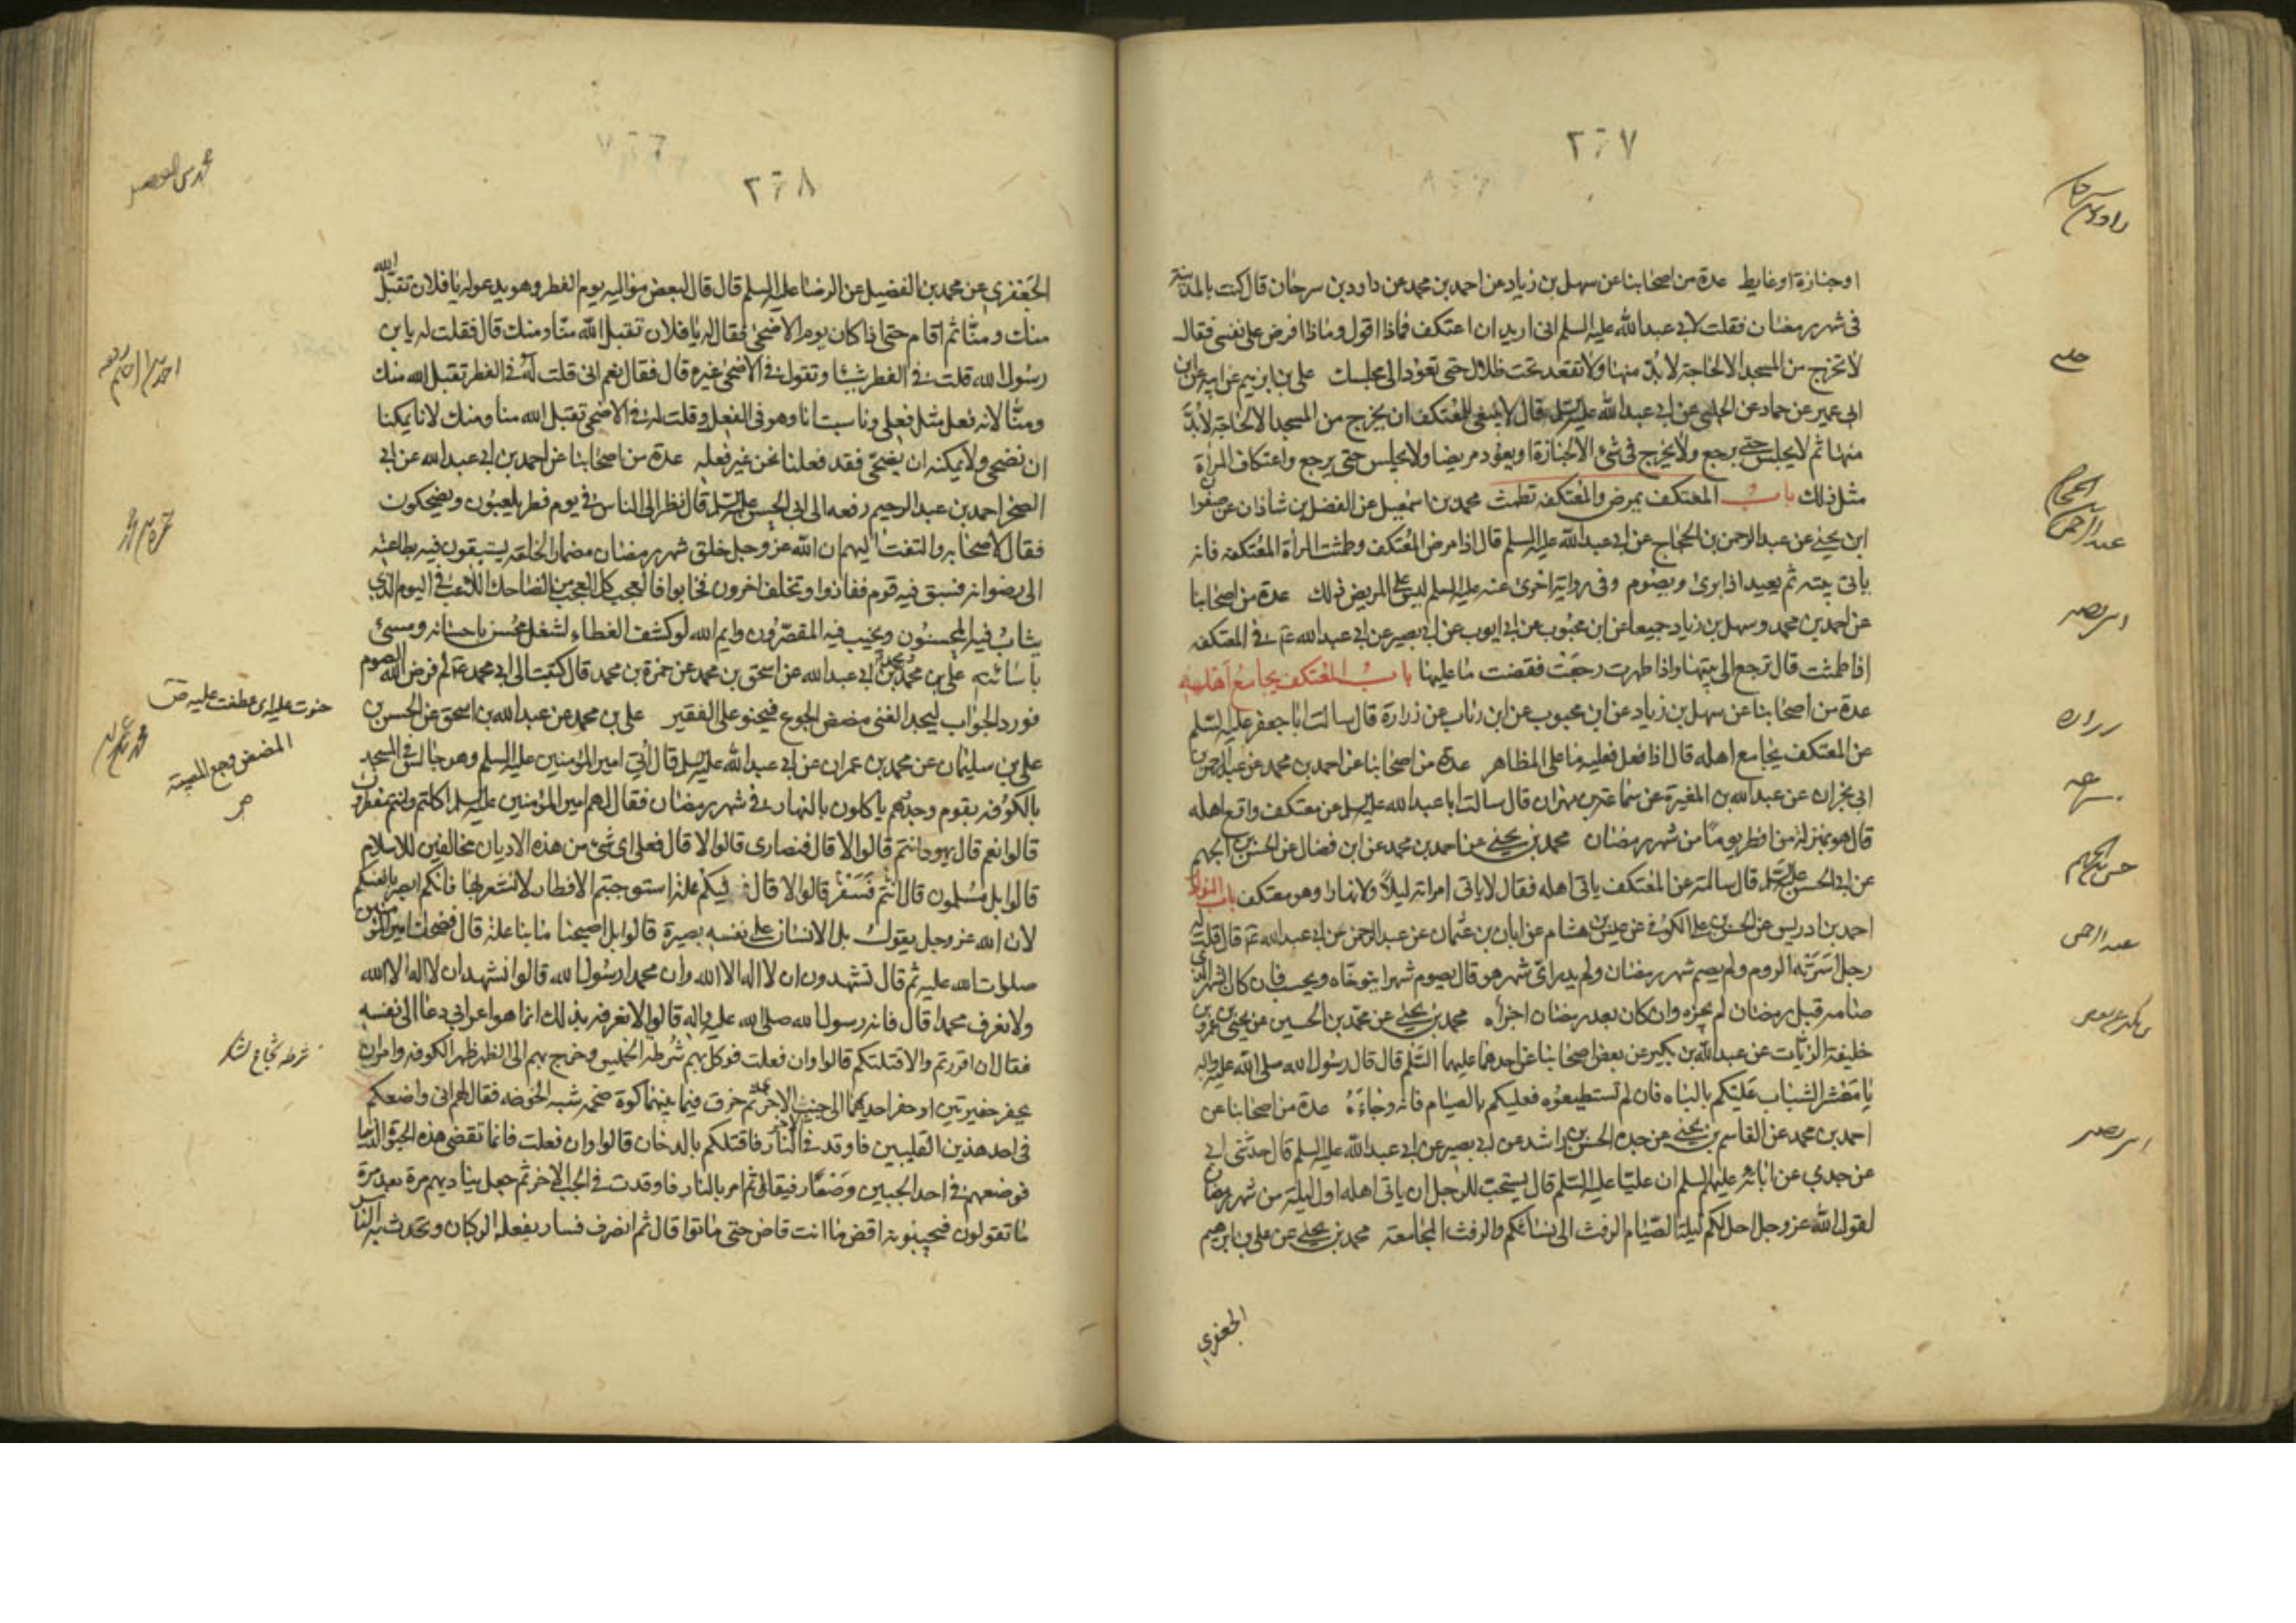 ٢٦٧
اوجنازة اوغايط عدة من اصحابنا عن سهل بن زياد عن احمد بن محمد عن داود بن سرحان قال كنت بالمدينة
فى شهر رمضان فقلت لابي عبدالله عليه السلم انى اريد ان اعتكف فماذا اقول وماذا افرض على نفسى فقال
لا تخرج من المسجد الا لحاجة لا بدّ منها ولا تقعد تحت ظلال حتى تعود الى مجلسك على بن ابرهيم عن ابيه عن ابن
ابى عمير عن حماد عن الحلبى عن ابى عبدالله عليه السلم قال لا ينبغى للمعتكف ان يخرج من المسجد الا لحاجة لا بدّ
منها ثم لا يجلس حتى يرجع ولا يخرج فى شىء الا لجنازة او يعود مريضا ولا يجلس حتى يرجع واعتكاف المرأة
مثل ذلك باب المعتكف يمرض والمعتكفة تطمث محمد بن اسمعيل عن الفضل بن شاذان عن صفوا
ابن يحيى عن عبدالرحمن بن الحجاج عن ابى عبدالله عليه السلم قال اذا مرض المعتكف وطمثت المرأة المعتكفة فانه
ياتى بيته ثم يعيد اذا برئ ويصوم وفى رواية اخرى عنه عليه السلم ليس على المريض ذلك عدة من اصحابنا
عن احمد بن محمد وسهل بن زياد جميعا عن ابن محبوب عن ابى ايوب عن ابى بصير عن ابى عبدالله ع فى المعتكفة
اذا طمثت قال ترجع الى بيتها واذا طهرت رجعت فقضت ما عليها باب المعتكف يجامع اهله
عدة من اصحابنا عن سهل بن زياد عن ابن محبوب عن ابن رئاب عن زرارة قال سالت ابا جعفر عليه السلم
عن المعتكف يجامع اهله قال اذا فعل فعليه ما على المظاهر عدة من اصحابنا عن احمد بن محمد عن عبدالرحمن بن
ابى نجران عن عبدالله بن المغيرة عن سماعة بن مهران قال سالت ابا عبدالله عليه السلم عن معتكف واقع اهله
قال هو بمنزلة من افطر يوما من شهر رمضان محمد بن يحيى عن احمد بن محمد عن ابن فضال عن الحسن بن الجهم
عن ابى الحسن عليه السلم قال سالته عن المعتكف ياتى اهله فقال لا ياتى امراته ليلا ولا نهارا وهو معتكف باب النوادر
احمد بن ادريس عن الحسن بن على الكوفى عن عبيس بن هشام عن ابان بن عثمان عن عبدالرحمن عن ابى عبدالله ع قال قلت له
رجل اسرته الروم ولم يصم شهر رمضان ولم يدر اىّ شهر هو قال يصوم شهرا يتوخاه ويحسب فان كان الشهر الذى
صامه قبل رمضان لم يجزه وان كان بعد رمضان اجزأه محمد بن يحيى عن محمد بن الحسين عن يحيى بن عمرو بن
خليفة الزيّات عن عبدالله بن بكير عن بعض اصحابنا عن احدهما عليهما السّلم قال قال رسول الله صلى الله عليه واله
يا معشر الشباب عليكم بالباه فان لم تستطيعوه فعليكم بالصيام فانه وجاءه عدة من اصحابنا عن
احمد بن محمد عن القاسم بن يحيى عن جده الحسن بن راشد عن ابى بصير عن ابى عبدالله عليه السلم قال حدثنى ابى
عن جدي عن ابائه عليهم السلم ان عليّا عليه السّلم قال يستحبّ للرجل ان ياتى اهله اول ليلة من شهر رمضان
لقول الله عز وجل احل لكم ليلة الصّيام الرفث الى نسائكم والرفث المجامعة محمد بن يحيى عن على بن ابرهيم
الجعفري
داود بن سرحان
حلبى
عبدالرحمن بن الحجاج
ابى بصير
زراره
سماعه
حسن بن الجهم
عبدالرحمن
ابى بصير
٢٦٨
الجَعفري عن محمد بن الفضيل عن الرضا عليه السلم قال قال لبعض مواليه يوم الفطر وهو يدعو له يا فلان تقبّل الله
منك ومنّا ثم اقام حتى اذا كان يوم الاضحى فقال له يا فلان تقبل الله منّا ومنك قال فقلت له يابن
رسول الله قلت فى الفطر شيئا وتقول فى الاضحى غيره قال فقال نعم انى قلت له فى الفطر تقبل الله منك
ومنّا لانه فعل مثل فعلى وناسبت انا وهو فى الفعل وقلت له فى الاضحى تقبل الله منا ومنك لانا يمكننا
ان نضحى ولا يمكنه ان يضحّى فقد فعلنا نحن غير فعله عدة من اصحابنا عن احمد بن ابى عبدالله عن ابى
الصخر احمد بن عبدالرحيم رفعه الى ابى الحسن عليه السلم قال نظر الى الناس فى يوم فطر يلعبون ويضحكون
فقال لاصحابه والتفت اليهم ان الله عز وجل خلق شهر رمضان مضمارا لخلقه يستبقون فيه بطاعته
الى رضوانه فسبق فيه قوم ففازوا وتخلف اخرون فخابوا فالعجب كل العجب من الضاحك اللاعب فى اليوم الذي
يثاب فيه المحسنون ويخيب فيه المقصّرون وايم الله لو كشف الغطاء لشغل محسن باحسانه ومسىء
باسائته على بن محمد بن ابى عبدالله عن اسحق بن محمد عن حمزة بن محمد قال كتبت الى ابى محمد ع لم فرض الله الصوم
فورد الجواب ليجد الغنى مضض الجوع فيحنو على الفقير على بن محمد عن عبدالله بن اسحق عن الحسن بن
على بن سليمان عن محمد بن عمران عن ابى عبدالله عليه السلم قال اُتى امير المؤمنين عليه السلم وهو جالس فى المسجد
بالكوفه بقوم وجدوهم ياكلون بالنهار فى شهر رمضان فقال لهم امير المؤمنين عليه السلم اكلتم وانتم مفطرون
قالوا نعم قال يهود انتم قالوا لا قال فنصارى قالوا لا قال فعلى اى شىء من هذه الاديان مخالفين للاسلام
قالوا بل مسلمون قال اَفسفر انتم قالوا لا قال فيكم علة استوجبتم الافطار لا نشعر بها فانكم ابصر بانفسكم
لان الله عز وجل يقول بل الانسان على نفسه بصيرة قالوا بل اصبحنا ما بنا علة قال فضحك امير المؤمنين
صلوات الله عليه ثم قال تشهدون ان لا اله الا الله وان محمدا رسول الله قالوا نشهد ان لا اله الا الله
ولا نعرف محمدا قال فانه رسول الله صلى الله عليه واله قالوا لا نعرفه بذلك انما هو اعرابى دعا الى نفسه
فقال ان اقررتم والا قتلتكم قالوا وان فعلت فوكل بهم شرطة الخميس وخرج بهم الى الظهر ظهر الكوفه وامر ان
يحفر حفيرتين وحفر احديهما الى جنب الاخرى ثم خرق فيما بينهما كوة ضخمه شبه الخوخه فقال لهم انى واضعكم
فى احد هذين القليبين فاوقد فى الاخر النار فاقتلكم بالدخان قالوا وان فعلت فانما تقضى هذه الحيوة الدنيا
فوضعهم فى احد الجبين وضعًا رفيقا ثم امر بالنار فاوقدت فى الجب الاخر ثم جعل يناديهم مرة بعد مرة
ما تقولون فيجيبونه اقض ما انت قاض حتى ماتوا قال ثم انصرف فسار بفعله الركبان وتحدث به الناس
حمزه بن محمد
حنوت عليه اى عطفت عليه ص
المضض وجع المصيبة
ص
محمد بن عمران